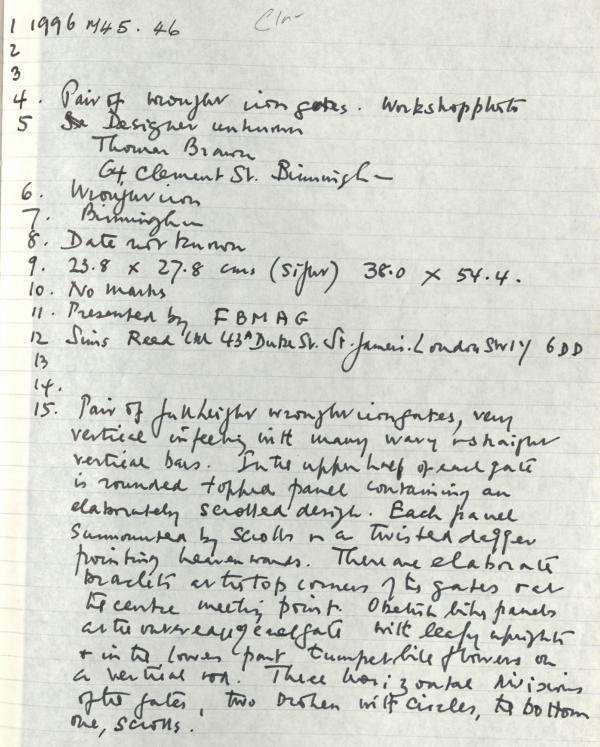 1 1996 M45. 46
2
3
4. Pair of wrought iron gates. Workshop photo
5 Designer unknown
Thomas Brawn
64, Clement St. Birmingham
6. Wrought iron
7. Birmingham
8. Date not known
9. 23.8 x 27.8 cms (sight) 38.0 x 54.4.
10. No marks
11. Presented by FBMAG
12 Sims Reed Ltd 43A Duke St. St. James's. London SW1Y 6DD
13
14.
15. Pair of full height wrought iron gates, very
vertical in feeling with many wavy + straight
vertical bars. In the upper half of each gate
is rounded topped panel containing an
elaborately scrolled design. Each panel
surmounted by scrolls or a twisted dagger
pointing heavenwards. There are elaborate
brackets at the top corners of the gates + at
the centre meeting point. Obelisk like panels
at the outer edge of each gate with leafy uprights
+ in the lower part trumpet like flowers on
a vertical rod. Three horizontal divisions
of the gates, two broken with circles, the bottom
one, scrolls.